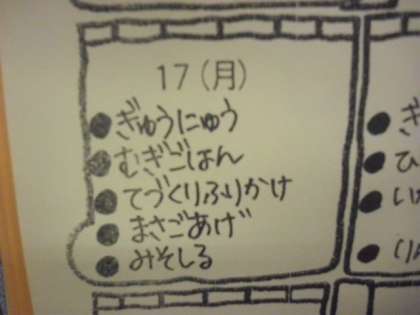 17(月)
●ぎゅうにゅう
●むぎごはん
●てづくりふりかけ
●まさごあげ
●みそしる